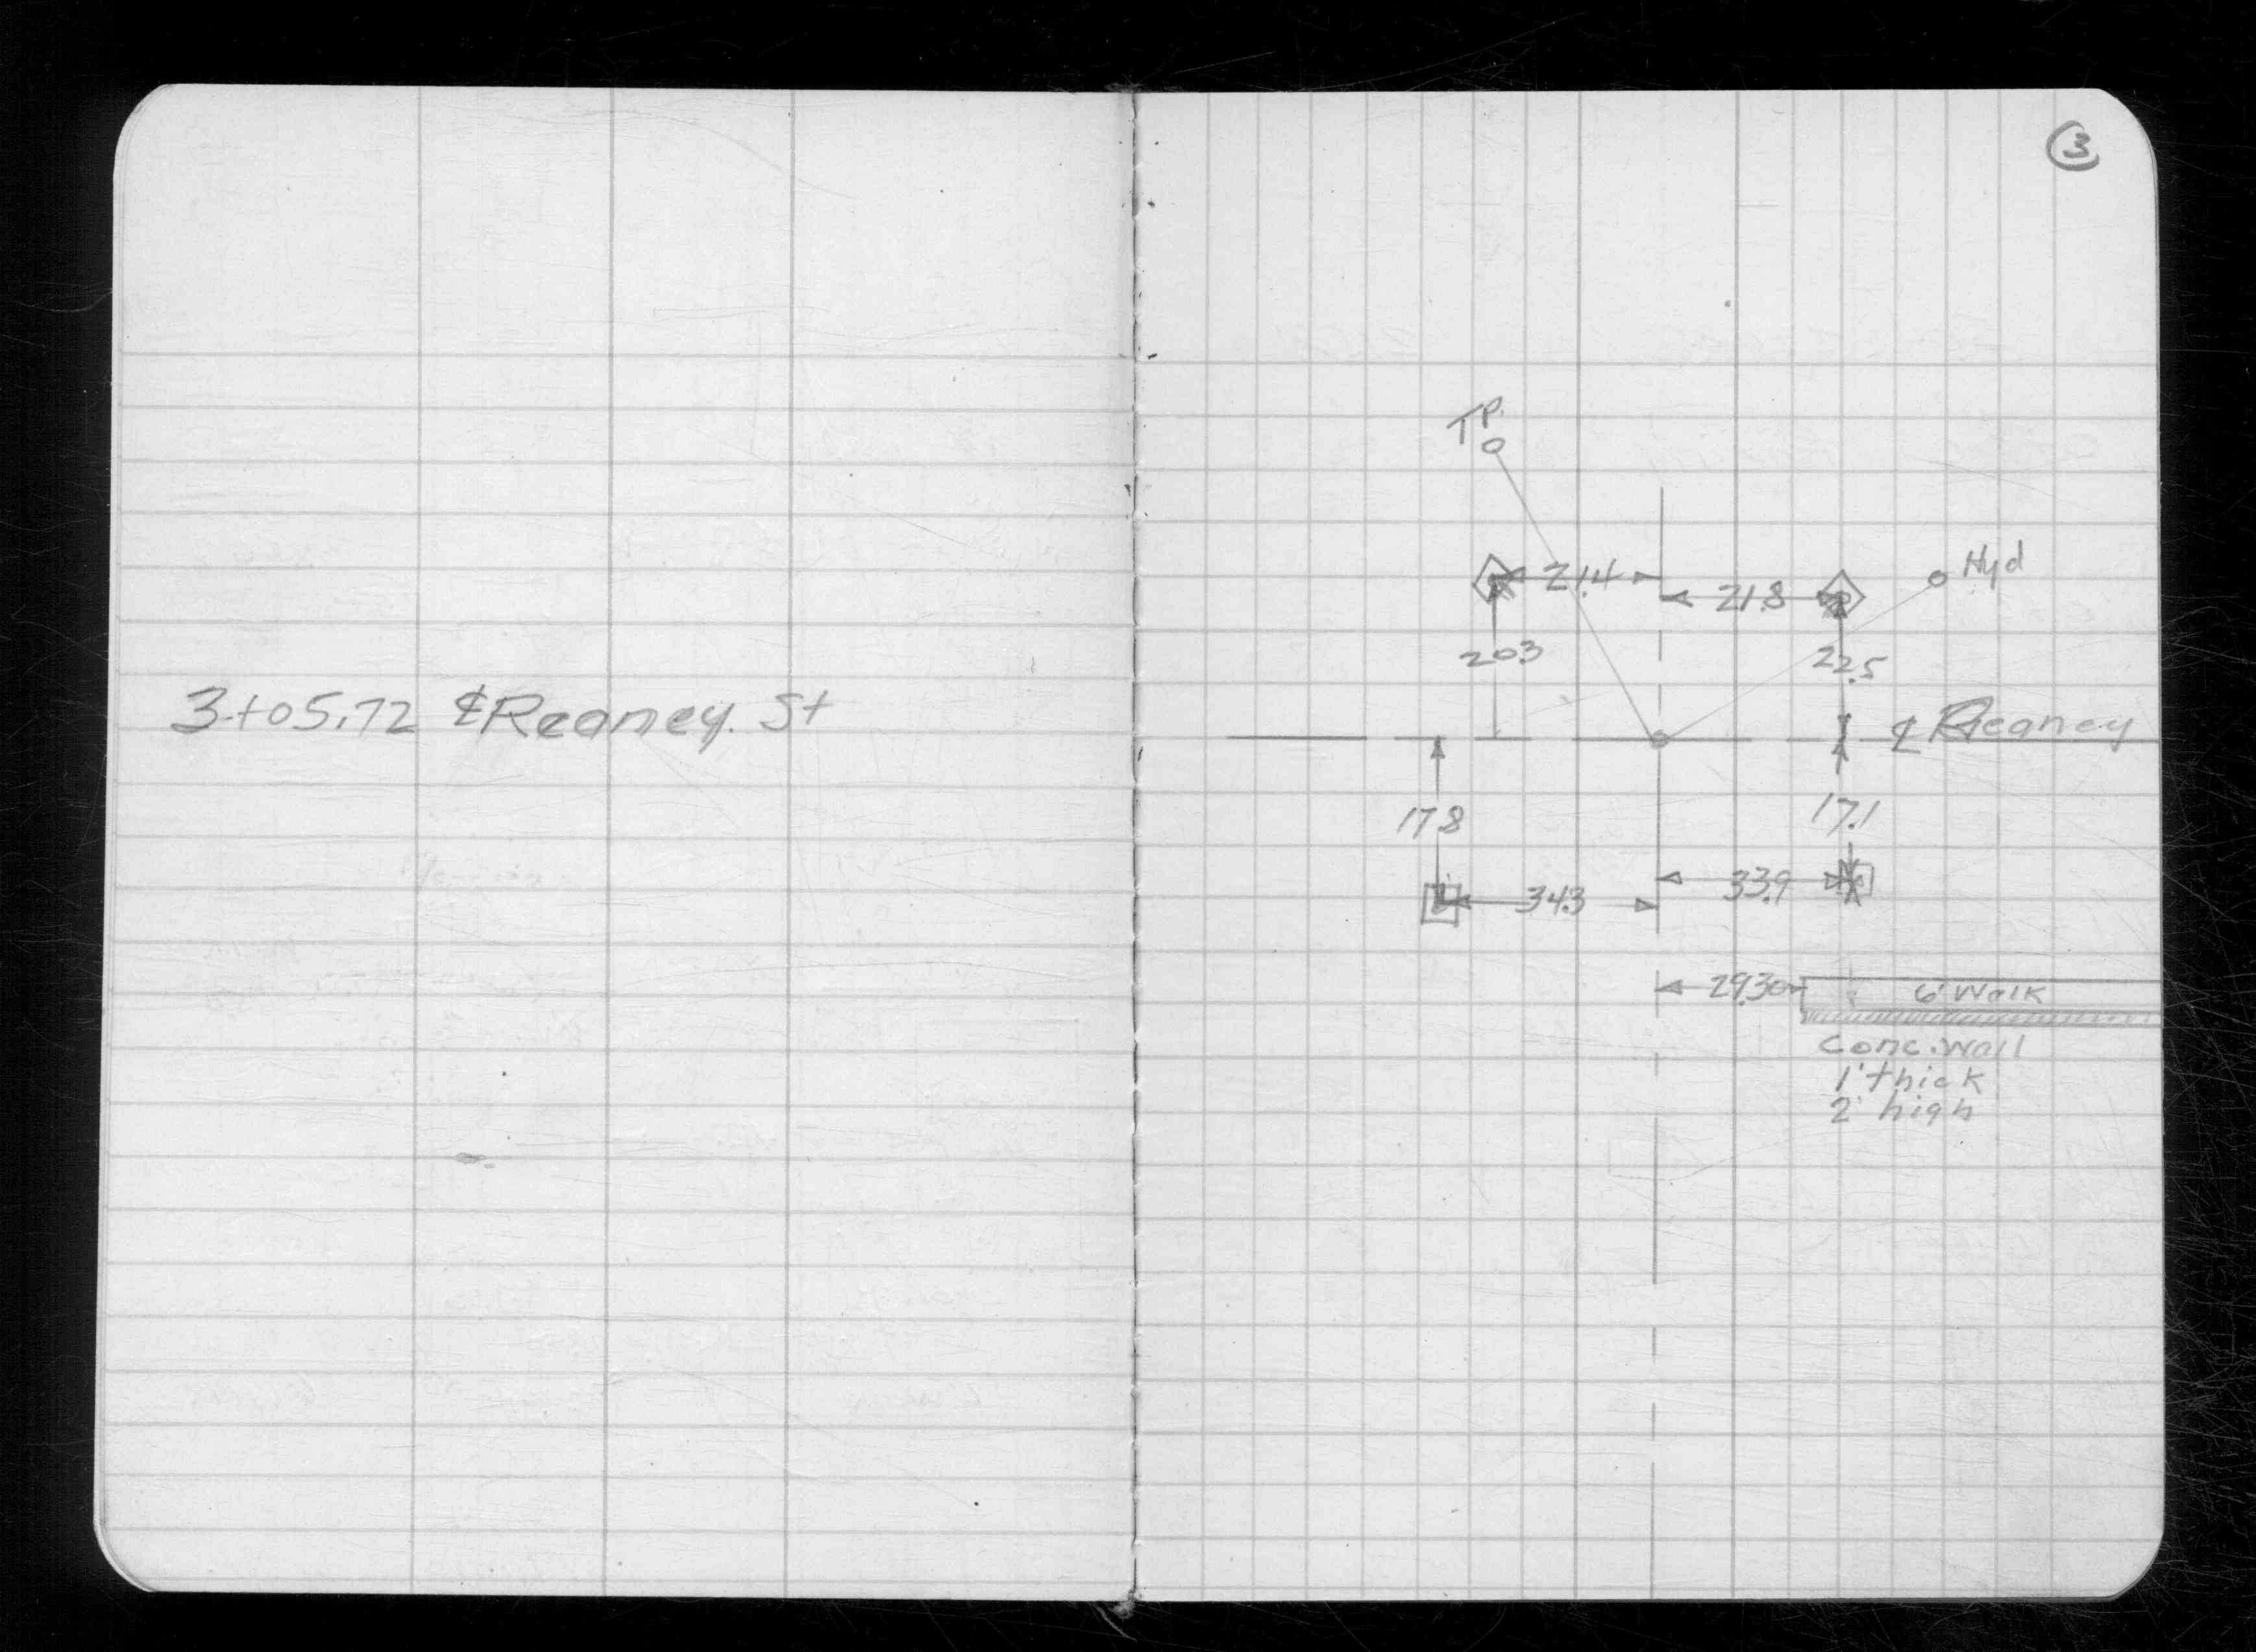 3+05.72 ℄ Reaney. St
3
T.P.
Hyd
21.4
21.8
20.3
22.5
℄ Reaney
17.8
17.1
33.9
34.3
29.30
6' Walk
Conc. Wall
1' thick
2' high